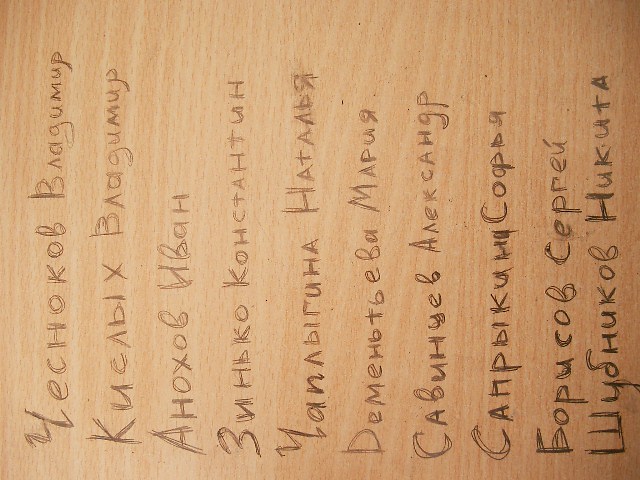 Чесноков Владимир
Кислых Владимир
Анохов Иван
Зинько Константин
Чаплыгина Наталья
Дементьева Мария
Савинцев Александр
Сапрыкина Софья
Борисов Сергей
Шубников Никита